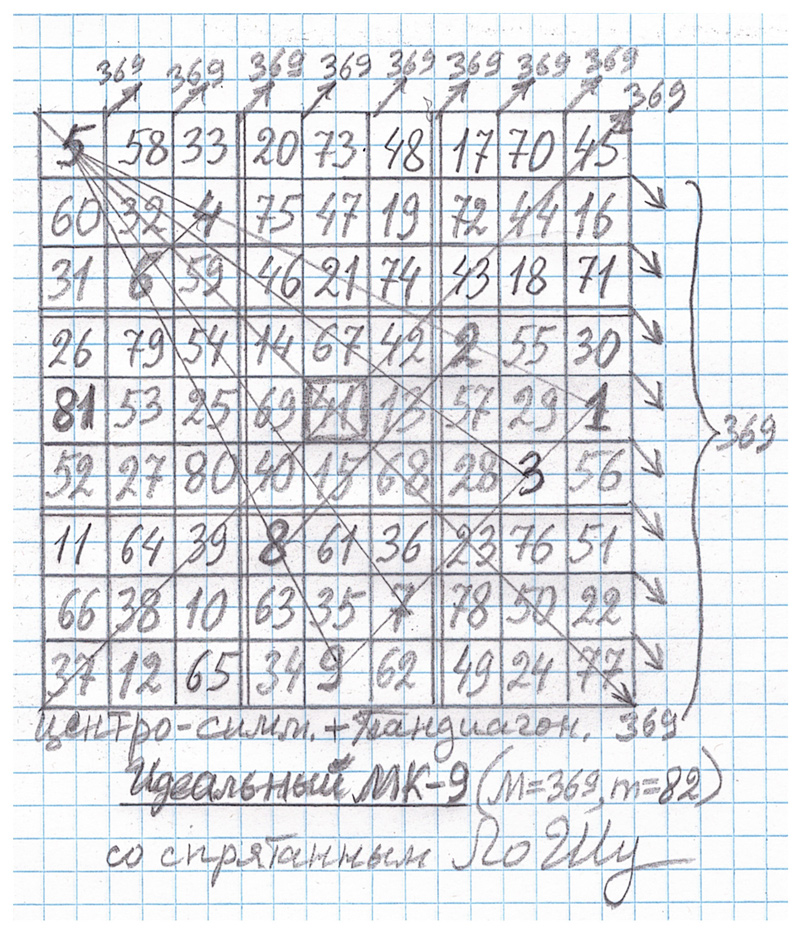 369 369 369 369 369 369 369 369
369
5 58 33 20 73 48 17 70 45
60 32 4 75 47 19 72 44 16
31 6 59 46 21 74 43 18 71
26 79 54 14 67 42 2 55 30
81 53 25 69 41 13 57 29 1
369
52 27 80 40 15 68 28 3 56
11 64 39 8 61 36 23 76 51
66 38 10 63 35 7 78 50 22
37 12 65 34 9 62 49 24 77
Центро-симм. + Пандиагон. 369
Идеальный МК-9 (M=369, m=82)
со спрятанным Ло Шу